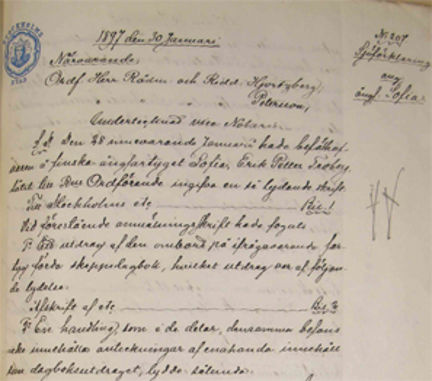 STOCKHOLMS
STAD
1897 den 30 Januari.
No 207
Närvarande:
Sjöförklaring
Ordf Herr Rådm: och Rådd: Hjortzberg,
ang
" " " Peterson,
ångf. Sofia.
Undertecknad vice Notarie.
S. D. Den 28 innevarande Januari hade befälhaf-
varen å finska ångfartyget Sofia, Erik Petter
låtit till Ordförande ingifva en så lydande skrift
Till Stockholms etc Bil. 1
Vid förestående anmälningsskrift hade fogats
1o Ett utdrag af den ombord på ifrågavarande far-
tyg förda skeppsdagbok, hvilket utdrag var af följan-
de lydelse:
Afskrift af etc
2o En handling, som i de delar, densamma befans
icke innehålla anteckningar af enahanda innehåll
som dagboksutdraget, lydde sålunda